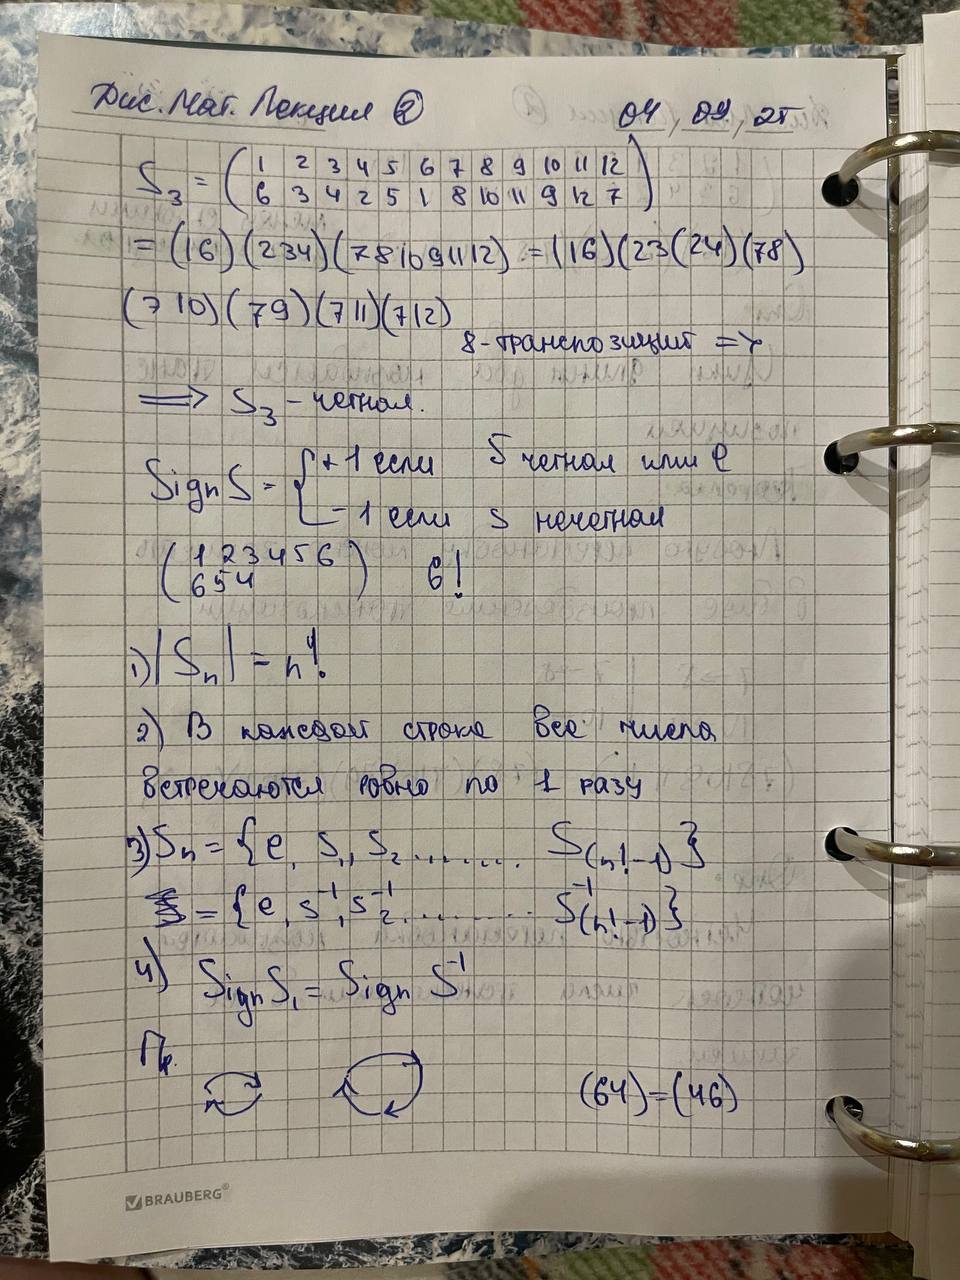 Дис. Мат. Лекция ② 04, 09, 25
S₃ = ( 1 2 3 4 5 6 7 8 9 10 11 12 )
( 6 3 4 2 5 1 8 10 11 9 12 7 )
= (16)(234)(781091112) = (16)(23(24)(78)
(710)(79)(711)(712)
8-транспозиций =>
=> S₃ - четная.
Sign S = { +1 если S четная или e
-1 если S нечетная
( 1 2 3 4 5 6 ) 6!
( 6 5 4 )
1) |Sₙ| = n!
2) В каждой строке все числа
встречаются ровно по 1 разу
3) Sₙ = {e, S₁, S₂ ........ S₍ₙ!₋₁₎}
= {e, S⁻¹, S₂⁻¹ ......... S⁻¹₍ₙ!₋₁₎}
4) Sign S₁ = Sign S⁻¹
Пр.
(64)=(46)
BRAUBERG®